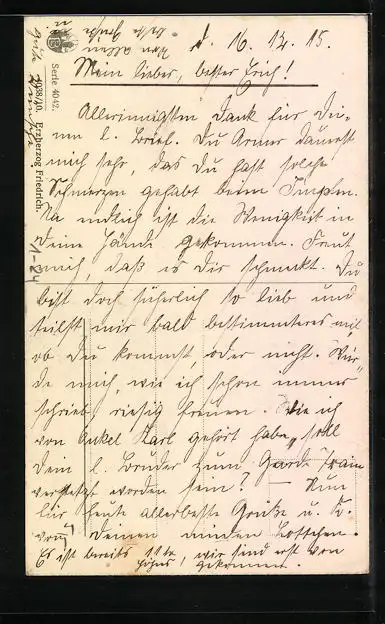 d. 16. 12. 15.
Mein lieber, bester Erich!
Allerinnigsten Dank für Dei-
nen l. Brief. Du Armer dauerst
mich sehr, das Du hast solche
Schmerzen gehabt beim Impfen.
Na endlich ist die Wenigkeit in
Deine Hände gekommen. Freut
mich, daß es Dir schmeckt. Du
bist doch sicherlich so lieb und
teilst mir bald bestimmteres mit,
ob Du kommst, oder nicht. Wür-
de mich, wie ich schon immer
schrieb riesig freuen. Wie ich
von Onkel Karl gehört habe, soll
Dein l. Bruder zum Garde Train
versetzt worden sein? — Nun
für heute allerbeste Grüße u. K.
von Deinem Lottchen.
Es ist bereits 11 Uhr, wir sind erst von
gekommen.
von allen
beste Grüße
Gute
Serie 4042.
1938/40. Erzherzog Friedrich.